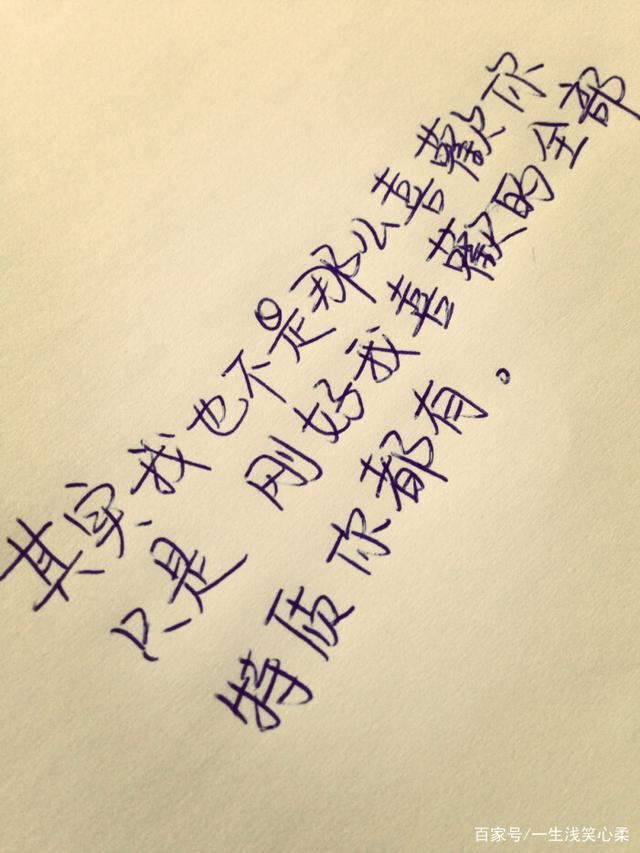 其实我也不是那么喜歡你
只是 刚好我喜歡的全部
特质 你都有。
百家号/一生浅笑心柔